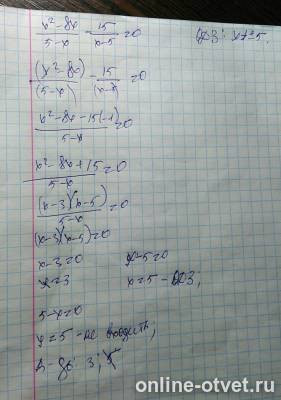 x²-8x/5-x - 15/x-5 =0 ОДЗ: x≠5
(x²-8x)/(5-x) - 15/(x-5) =0
x²-8x-15(-1)/5-x =0
x²-8x+15/5-x =0
(x-3)(x-5)/5-x =0
(x-3)(x-5)=0
x-3=0 x-5=0
x=3 x=5 - ОДЗ;
5-x=0
x=5 - не входить,
3; 5
online-otvet.ru